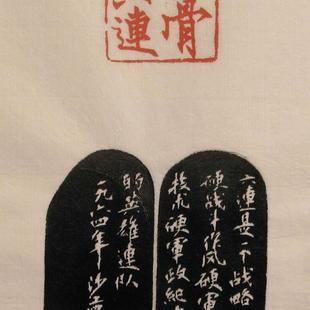 骨
連
六連是一个战略
硬战斗作风硬軍
技术硬軍政纪
的英雄連队
一九六四年沙